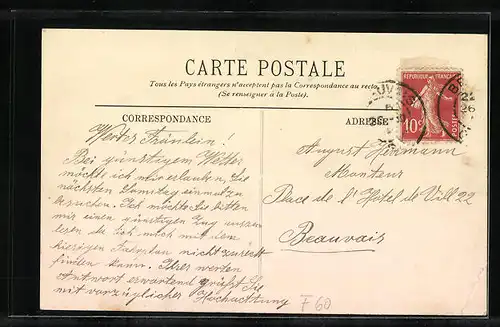 CARTE POSTALE
Tous les Pays étrangers n'acceptent pas la Correspondance au recto
(Se renseigner à la Poste).
CORRESPONDANCE
Werter Fräulein!
Bei günstigem Wetter
möchte ich mir erlauben Sie
nächsten Samstag einmal zu
besuchen. Ich möchte Sie bitten
mir einen günstigen Zug
lesen da ich mich mit dem
hiesigen nicht zurecht
finden kann. Ihrer werten
Antwort erwartend grüßt Sie
mit vorzüglicher Hochachtung
ADRESSE
August Hermann
Monteur
Place de l'Hôtel de Vill 22
Beauvais
F60
REPUBLIQUE FRANÇAISE
10c
POSTES